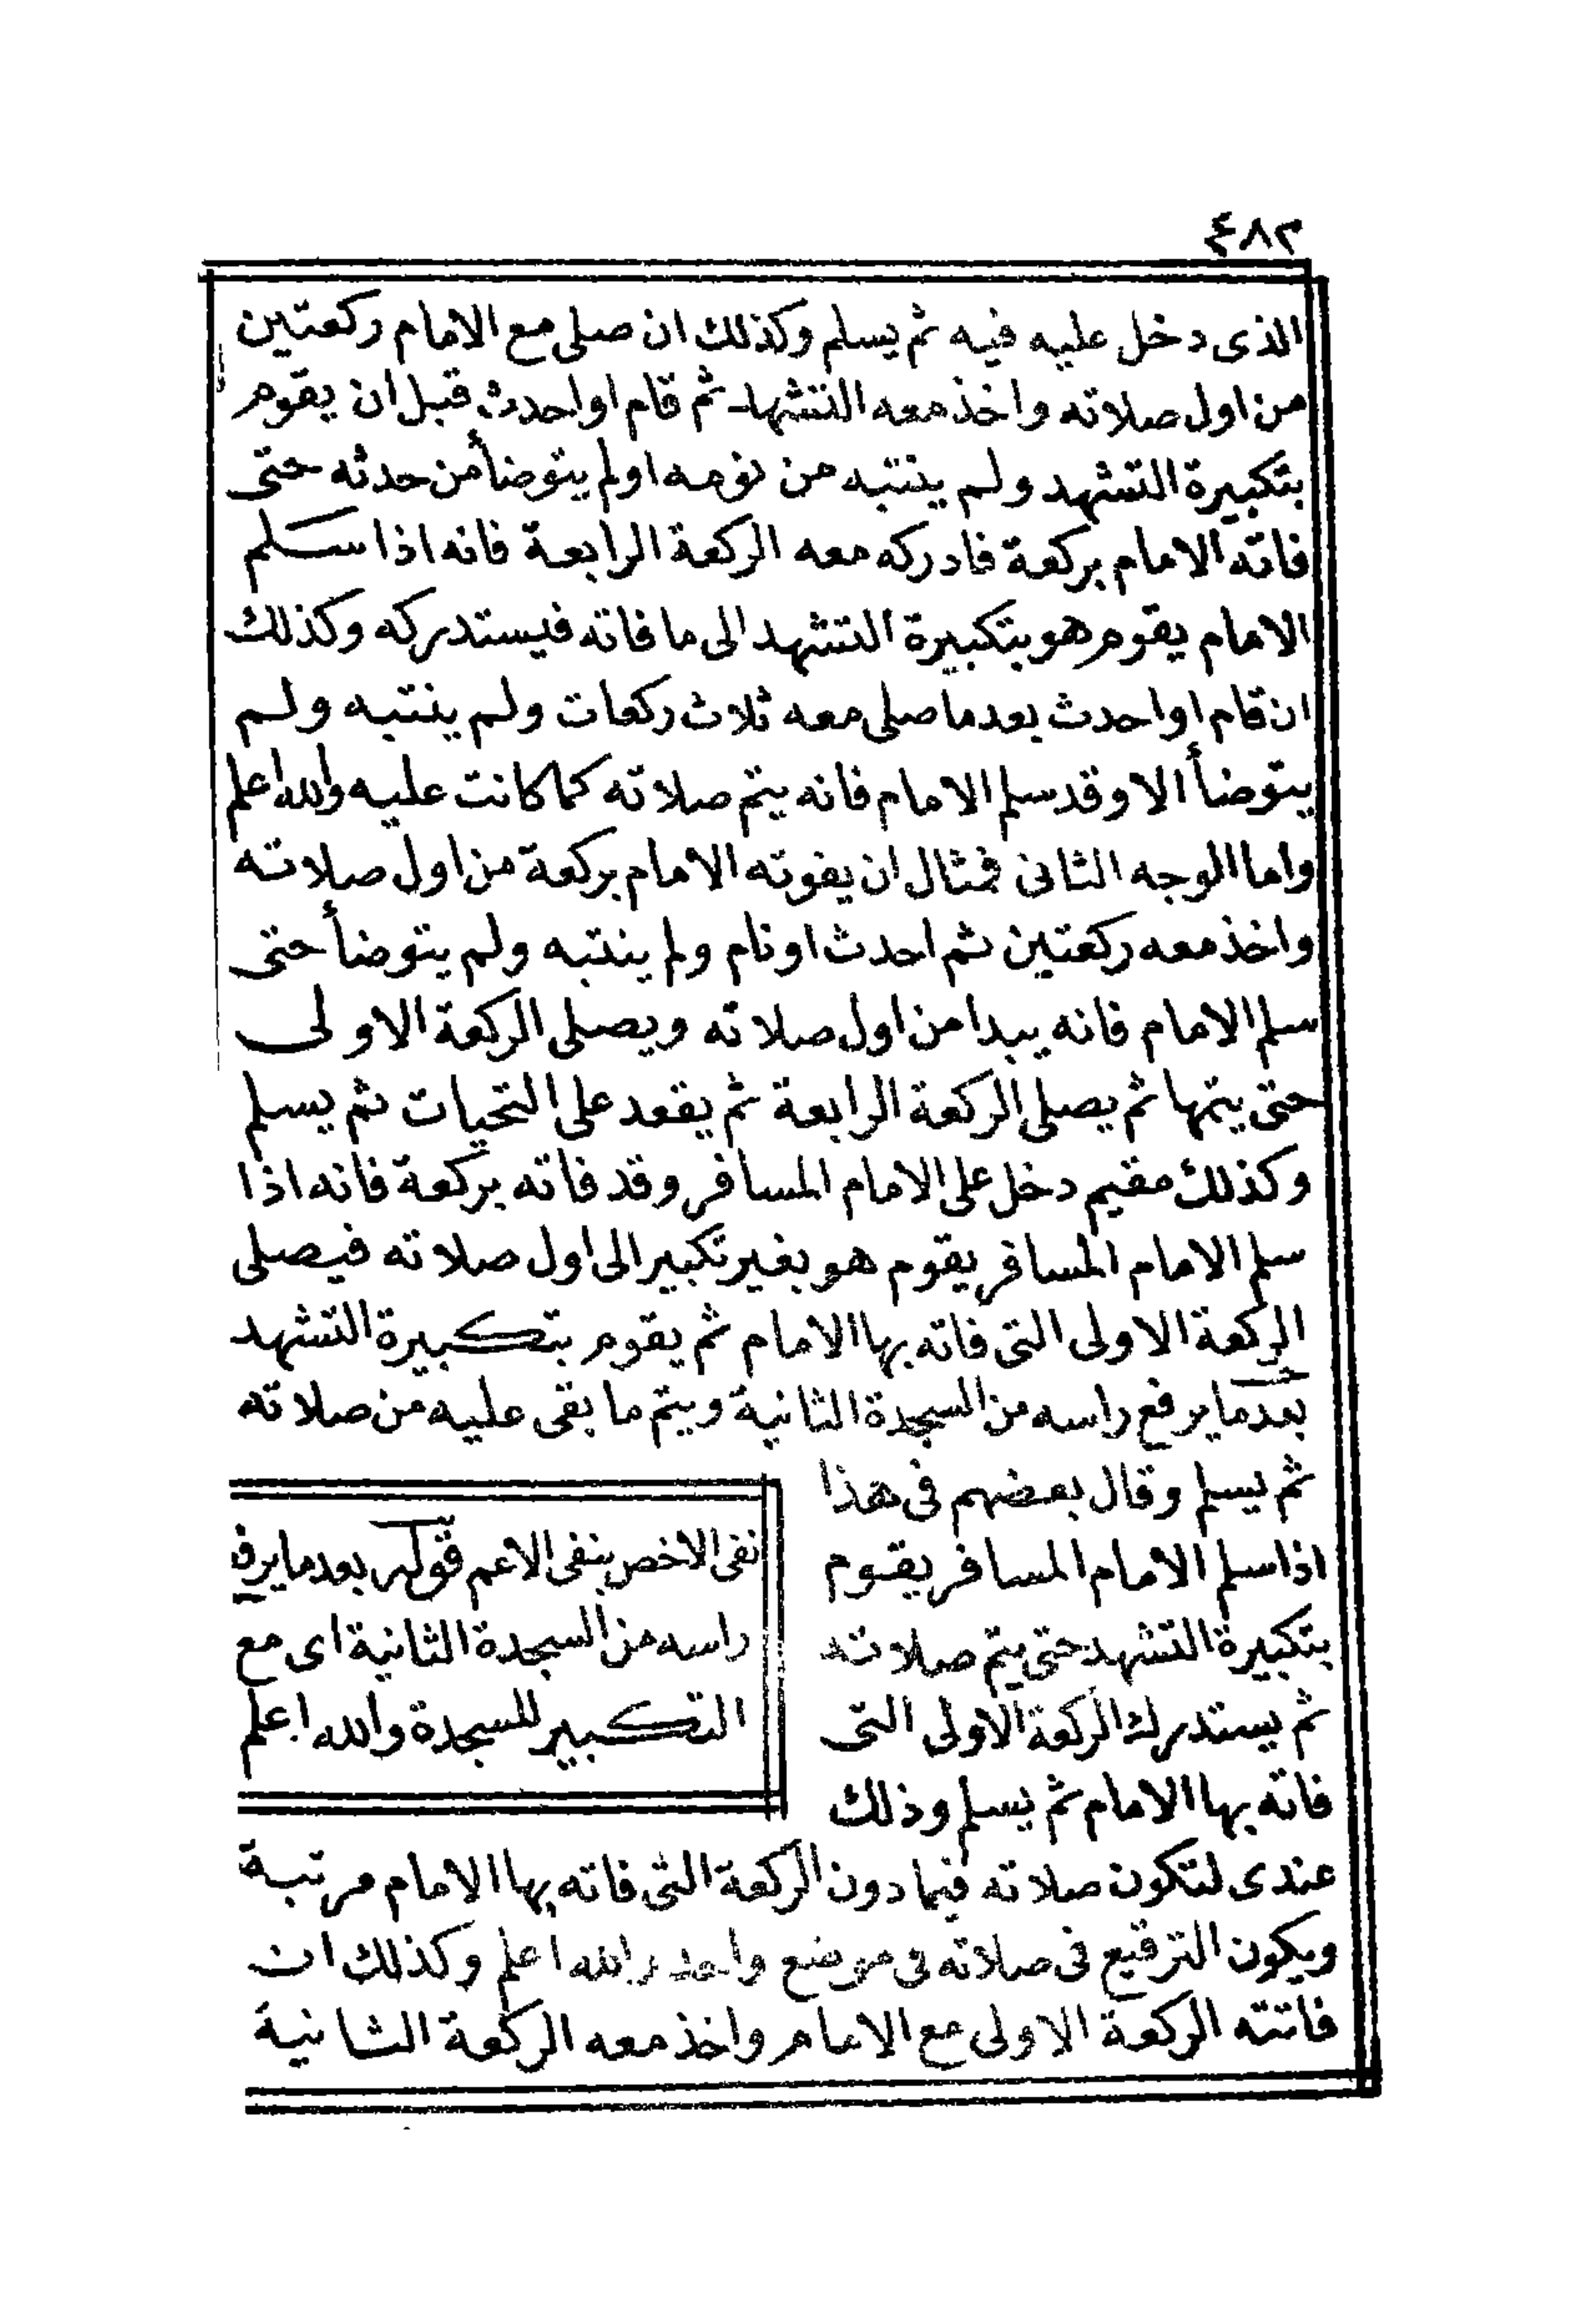 ٤٨٢
الذى دخل عليه فيه ثم يسلم وكذلك ان صلى مع الامام ركعتين
من اول صلاته واخذ معه التشهد ثم قام او احدث قبل ان يقوم
بتكبيرة التشهد ولم ينتبه من نومه اولم يتوضأ من حدثه حتى
فاته الامام بركعة فادركه معه الركعة الرابعة فانه اذا سلم
الامام يقوم هو بتكبيرة التشهد الى ما فاته فيستدركه وكذلك
ان قام او احدث بعد ما صلى معه ثلاث ركعات ولم ينتبه ولم
يتوضأ الا وقد سلم الامام فانه يتم صلاته كما كانت عليه والله اعلم
واما الوجه الثانى فمثال ان يفوته الامام بركعة من اول صلاته
واخذ معه ركعتين ثم احدث او نام ولم ينتبه ولم يتوضأ حتى
سلم الامام فانه يبدا من اول صلاته ويصلى الركعة الاولى
حتى يتمها ثم يصلى الركعة الرابعة ثم يقعد على التحيات ثم يسلم
وكذلك مقيم دخل على الامام المسافر وقد فاته بركعة فانه اذا
سلم الامام المسافر يقوم هو بغير تكبير الى اول صلاته فيصلى
الركعة الاولى التى فاته بها الامام ثم يقوم بتكبيرة التشهد
بعد ما يرفع راسه من السجدة الثانية ويتم ما بقى عليه من صلاته
ثم يسلم وقال بعضهم فى هذا
اذا سلم الامام المسافر يقوم
بتكبيرة التشهد حتى يتم صلاته
ثم يستدرك الركعة الاولى التى
فاته بها الامام ثم يسلم وذلك
عندى لتكون صلاته فيما دون الركعة التى فاته بها الامام مرتبة
ويكون الترقيع فى صلاته فى موضع واحد والله اعلم وكذلك ان
فاتته الركعة الاولى مع الامام واخذ معه الركعة الثانية
نفى الاخص بنفى الاعم قوله بعد ما يرفع
راسه من السجدة الثانية اى مع
التكبير للسجدة والله اعلم